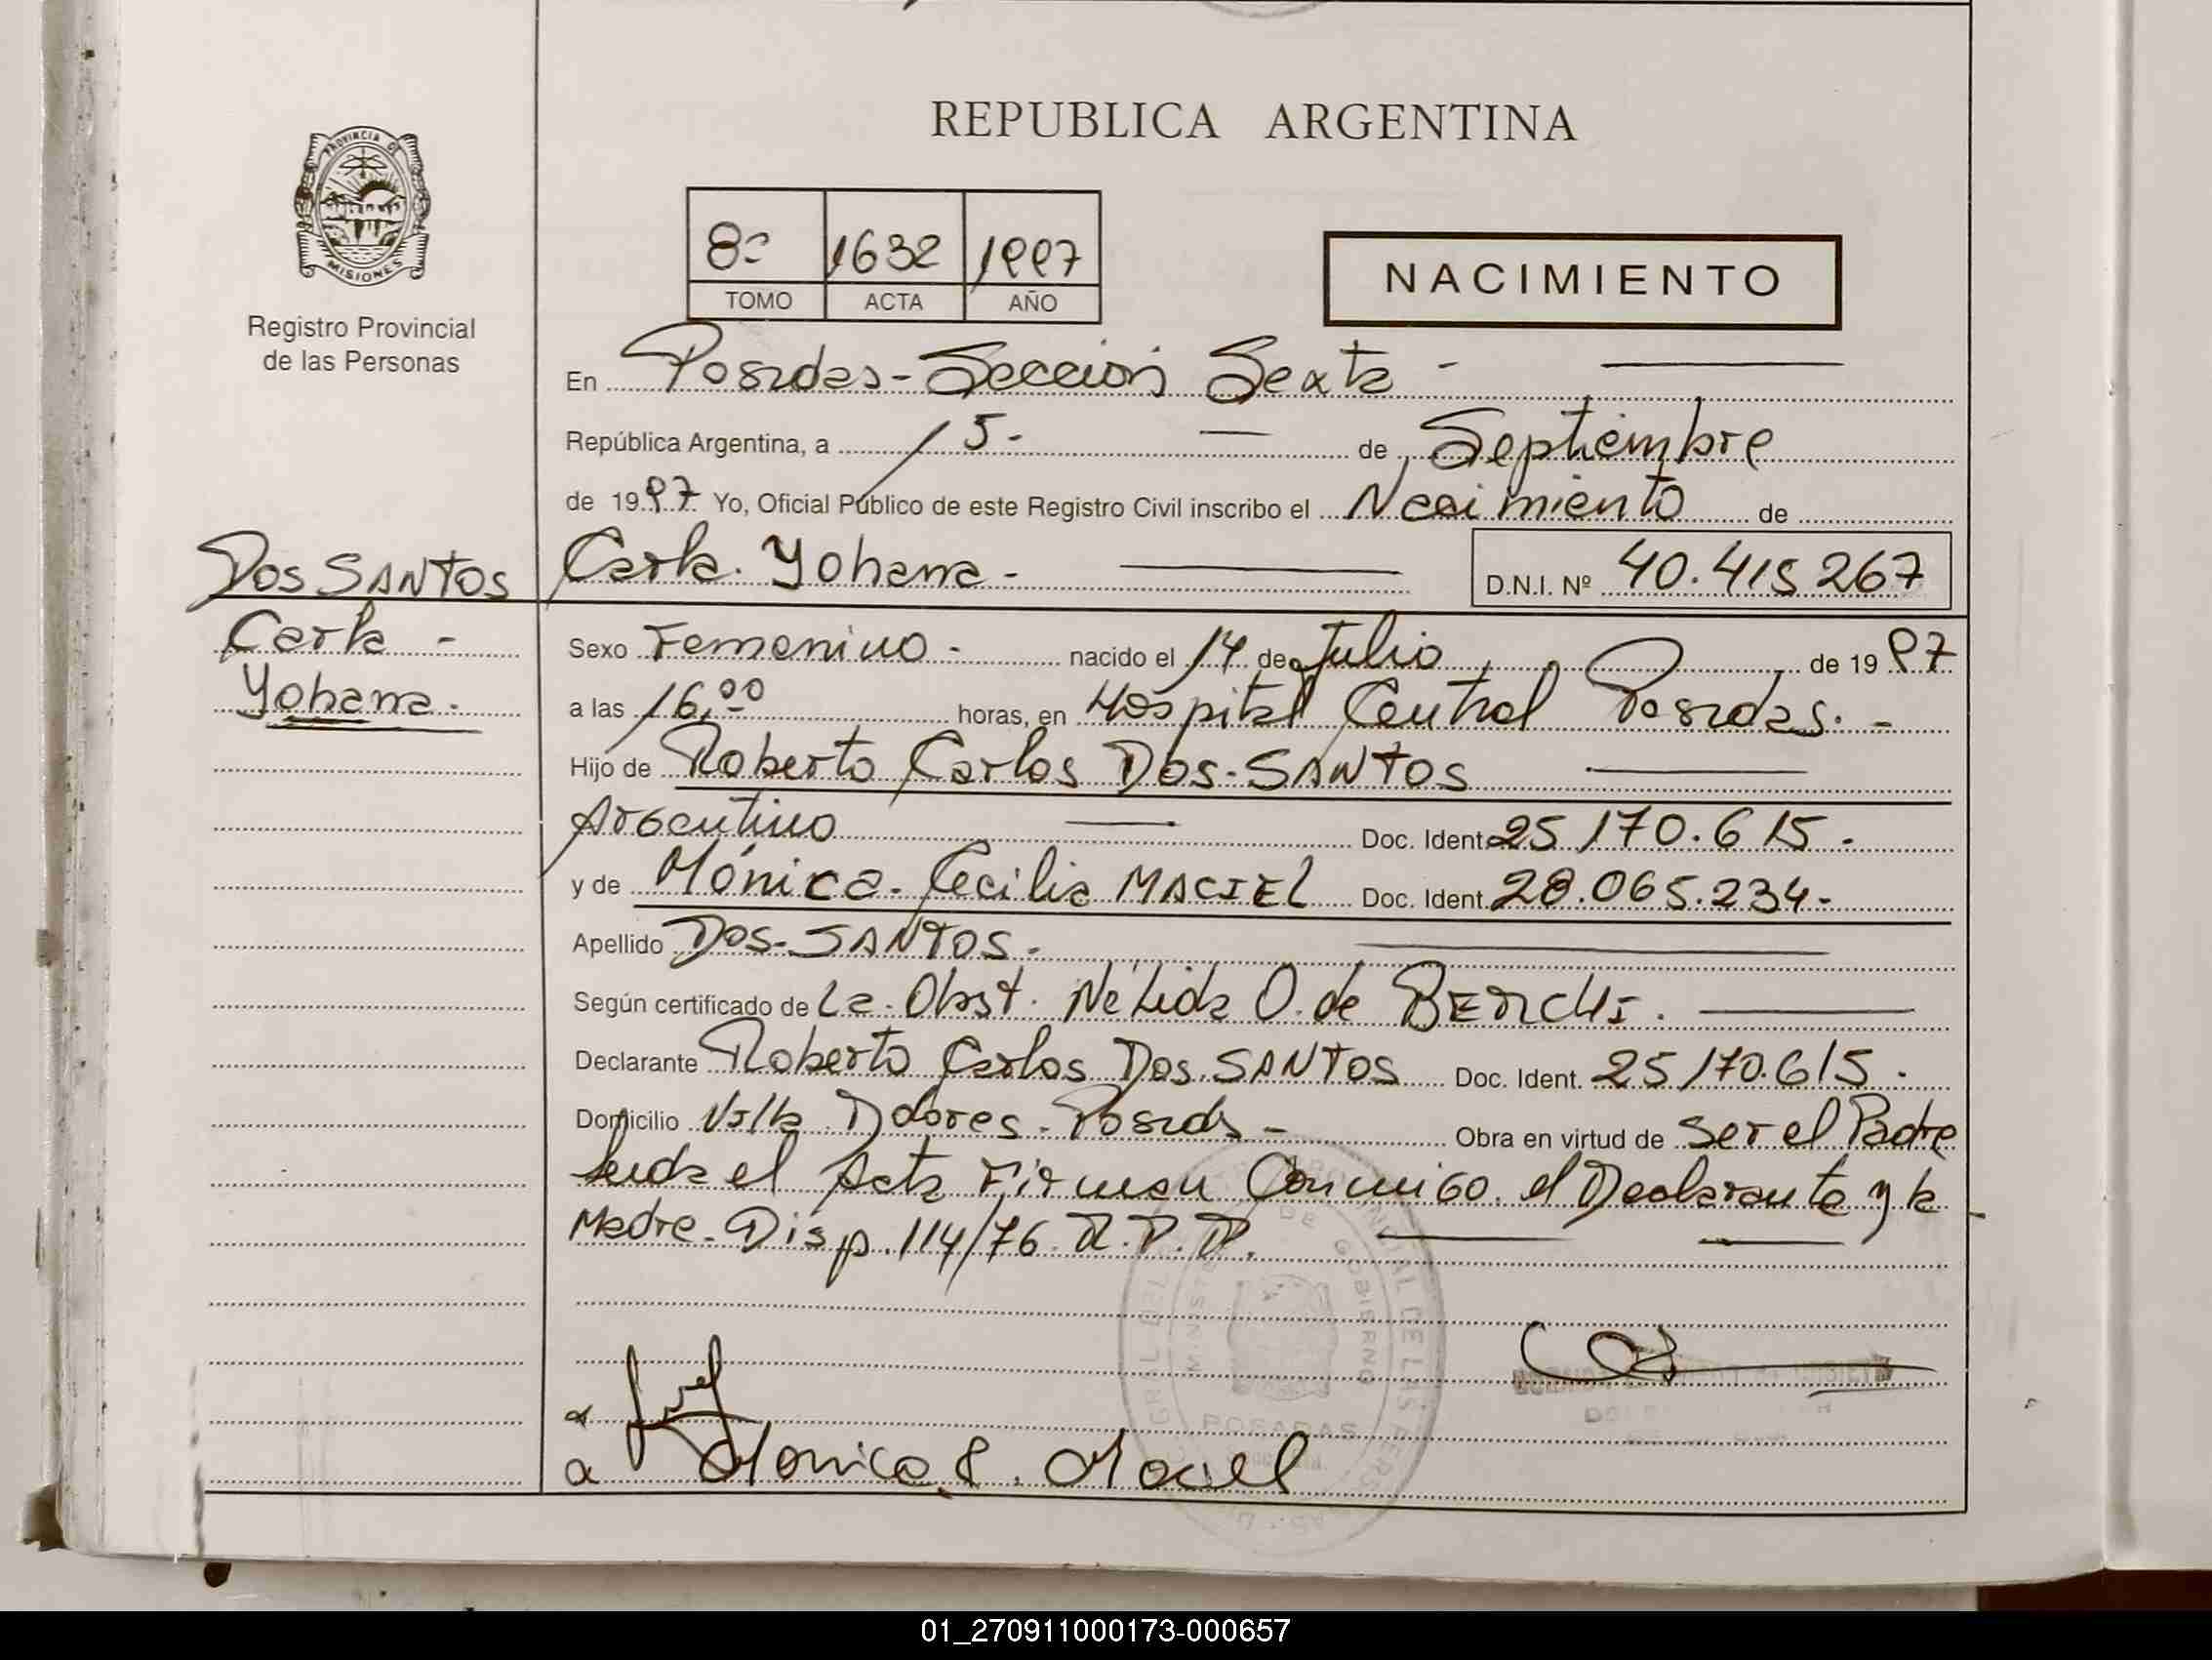 REPUBLICA ARGENTINA
PROVINCIA DE
MISIONES
Registro Provincial
de las Personas
8º 1632 1997
TOMO ACTA AÑO
NACIMIENTO
En Posadas - Sección Sexta -
República Argentina, a 15 - de Septiembre
de 1997 Yo, Oficial Público de este Registro Civil inscribo el Nacimiento de
Carla Yohana - D.N.I. Nº 40.415267
DOS SANTOS
Carla -
Yohana.
Sexo Femenino - nacido el 14 de Julio de 1997
a las 16,00 horas, en Hospital Central Posadas. -
Hijo de Roberto Carlos DOS-SANTOS
Argentino Doc. Ident. 25170.615.
y de Mónica Cecilia MACIEL Doc. Ident. 28.065.234-
Apellido DOS-SANTOS.
Según certificado de La Obst. Nélida O. de
Declarante Roberto Carlos Dos SANTOS Doc. Ident. 25170.615.
Domicilio Villa Dolores - Posadas - Obra en virtud de Ser el Padre
Leida el Acta Firman Conmigo el Declarante y la
Madre - Disp. 114/76 R.P.P.
MINISTERIO DE GOBIERNO
POSADAS
Monica C. Maciel
01_270911000173-000657